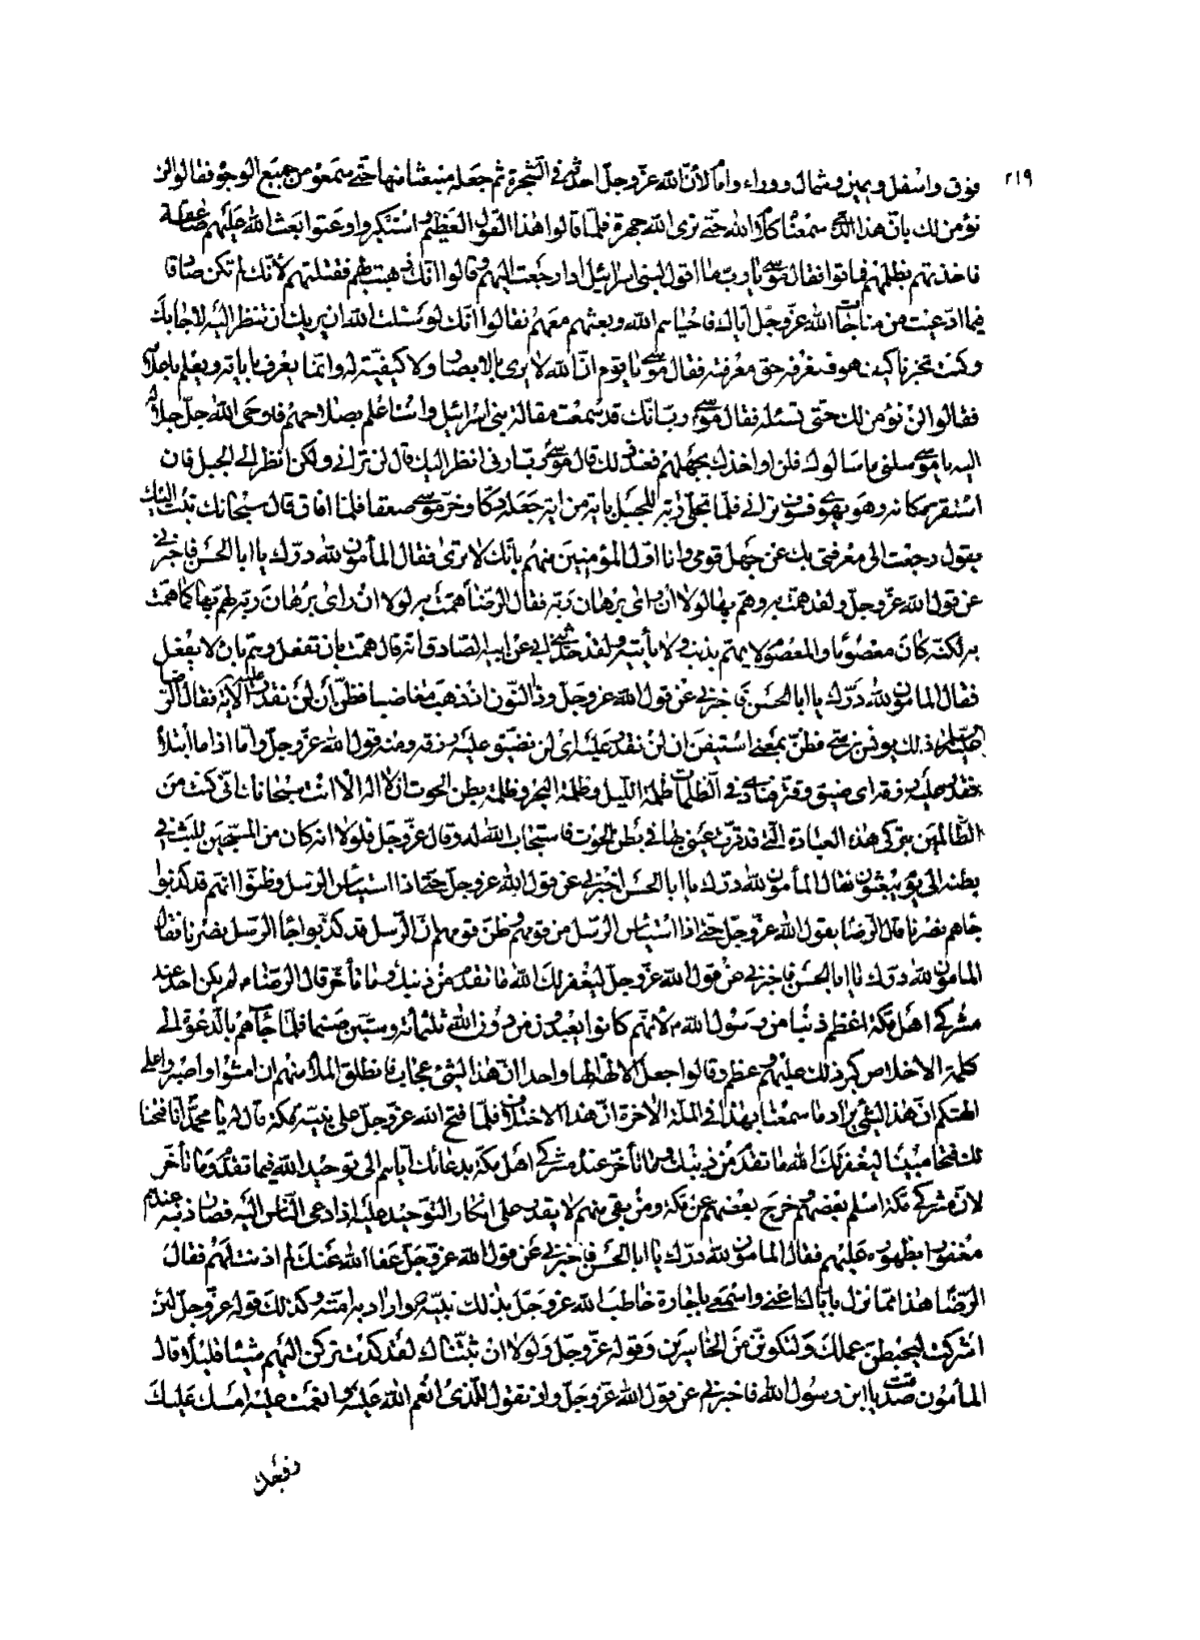 ٢١٩
فوق واسفل ويمين وشمال ووراء وامام لأنّ الله عزّ وجلّ احدثه في الشّجرة ثم جعله منبعثا منها حتّى سمعوه من جميع الوجوه فقالوا لن
نؤمن لك بانّ هذا الّذي سمعناه كلام الله حتّى نرى الله جهرة فلمّا قالوا هذا القول العظيم واستكبروا وعتوا بعث الله عليهم صاعقة
فاخذتهم بظلمهم فماتوا فقال موسى يا ربّ ما اقول لبني اسرائيل اذا رجعت اليهم وقالوا انّك ذهبت بهم فقتلتهم لأنّك لم تكن صادقا
فيما ادّعيت من مناجات الله عزّ وجلّ ايّاك فاحياهم الله وبعثهم معهم فقالوا انّك لو سئلت الله ان يريك ان تنظر اليه لأجابك
وكنت تخبرنا كيف هو فنعرفه حق معرفته فقال موسى يا قوم انّ الله لا يرى بالابصار ولا كيفيّة له وانّما يعرف باياته ويعلم باعلامه
فقالوا لن نؤمن لك حتّى تسئله فقال موسى ربّ انّك قد سمعت مقالة بني اسرائيل وانت اعلم بصلاحهم فاوحى الله جلّ جلاله
اليه يا موسى سلني ما سالوك فلن اواخذك بجهلهم فعند ذلك قال موسى ربّ ارني انظر اليك قال لن تراني ولكن انظر الى الجبل فان
استقر مكانه وهو يهوي فسوف تراني فلمّا تجلّى ربّه للجبل باية من اياته جعله دكّا وخرّ موسى صعقا فلمّا افاق قال سبحانك تبت اليك
يقول رجعت الى معرفتي بك عن جهل قومي وانا اوّل المؤمنين منهم بانّك لا ترى فقال المأمون لله درّك يا ابا الحسن فاخبرني
عن قول الله عزّ وجلّ ولقد همّت به وهمّ بها لولا أن رأى برهان ربّه فقال الرّضا ع همّت به ولولا ان راى برهان ربّه لهمّ بها كما همّت
به لكنّه كان معصوما والمعصوم لا يهتم بذنب ولا يأتيه ولقد حدّثني ابي عن ابيه الصّادق انّه قال همّت بان تفعل وهمّ بان لا يفعل
فقال المامون لله درّك يا ابا الحسن فاخبرني عن قول الله عزّ وجلّ وذا النّون اذ ذهب مغاضبا فظنّ أن لن نقدر عليه الاية فقال الرضا
عليه السلام ذلك يونس بن متّى فظنّ بمعنى استيقن ان لن نقدر عليه اي لن نضيّق عليه رزقه ومنه قول الله عزّ وجلّ وامّا اذا ما ابتلاه
فقدر عليه رزقه اي ضيق وقتر فنادى في الظّلمات ظلمة اللّيل وظلمة البحر وظلمة بطن الحوت ان لا اله الّا انت سبحانك انّي كنت من
الظّالمين بتركي هذه العبادة الّتي قد قرّت عيني بها في بطن الحوت فاستجاب الله له وقال عزّ وجلّ فلولا انه كان من المسبّحين للبث في
بطنه الى يوم يبعثون فقال المأمون لله درّك يا ابا الحسن اخبرني عن قول الله عزّ وجلّ حتّى اذا استيأس الرّسل وظنّوا انّهم قد كذبوا
جاءهم نصرنا قال الرّضا ع يقول الله عزّ وجلّ حتّى اذا استيأس الرّسل من قومهم وظنّ قومهم انّ الرّسل قد كذبوا جاء الرّسل نصرنا فقال
المامون لله درّك يا ابا الحسن فاخبرني عن قول الله عزّ وجلّ ليغفر لك الله ما تقدّم من ذنبك وما تأخّر قال الرضا ع لم يكن احد عند
مشركي اهل مكّة اعظم ذنبا من رسول الله ص لأنّهم كانوا يعبدون من دون الله ثلثمائة وستّين صنما فلمّا جاءهم بالدّعوة الى
كلمة الاخلاص كبر ذلك عليهم وعظم وقالوا اجعل الالهة الها واحدا انّ هذا لشئ عجاب وانطلق الملأ منهم ان امشوا واصبروا على
الهتكم انّ هذا لشئ يراد ما سمعنا بهذا في الملّة الاخرة انّ هذا الّا اختلاق فلمّا فتح الله عزّ وجلّ على نبيّه مكّة قال له يا محمّد انّا فتحنا
لك فتحا مبينا ليغفر لك الله ما تقدّم من ذنبك وما تأخّر عند مشركي اهل مكّة بدعائك ايّاهم الى توحيد الله فيما تقدّم وما تأخّر
لأنّ مشركي مكّة اسلم بعضهم وخرج بعضهم عن مكّة ومن بقي منهم لا يقدر على انكار التّوحيد عليه اذا دعى النّاس اليه فصار ذنبه عندهم
مغفورا بظهوره عليهم فقال المامون لله درّك يا ابا الحسن فاخبرني عن قول الله عزّ وجلّ عفا الله عنك لم اذنت لهم فقال
الرّضا ع هذا ممّا نزل بايّاك اعني واسمعي يا جارة خاطب الله عزّ وجلّ بذلك نبيّه ص واراد به امّته وكذلك قوله عزّ وجلّ لئن
اشركت ليحبطنّ عملك ولتكوننّ من الخاسرين وقوله عزّ وجلّ ولولا انّ ثبّتناك لقد كدت تركن اليهم شيئا قليلا قال
المأمون صدقت يا ابن رسول الله فاخبرني عن قول الله عزّ وجلّ واذ تقول للّذي انعم الله عليه وانعمت عليه امسك عليك